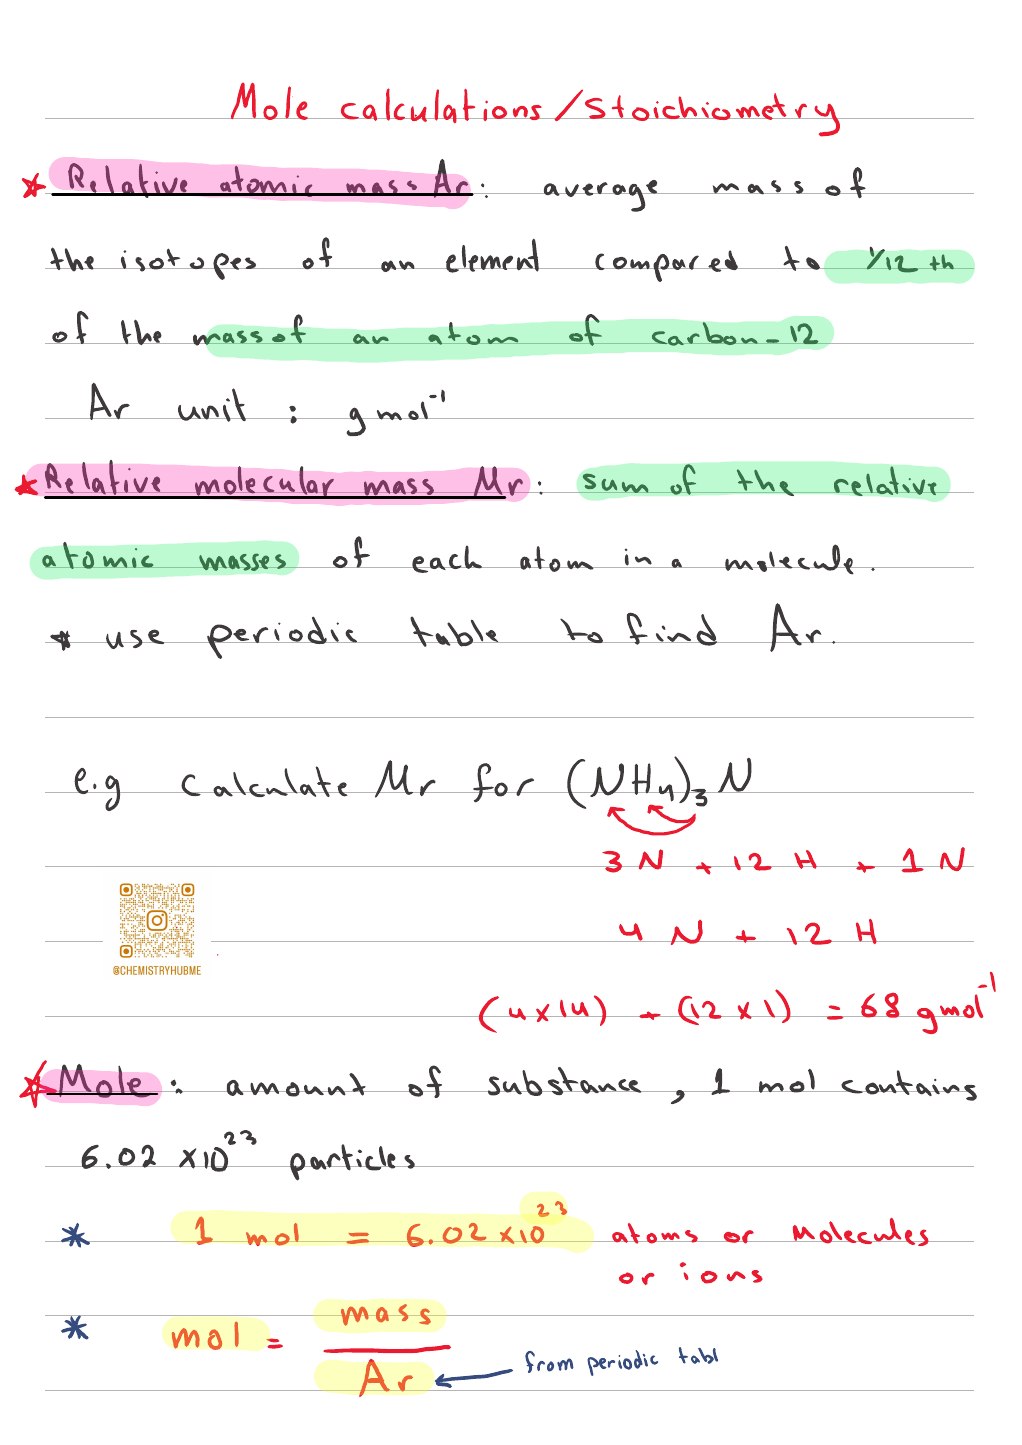 Mole calculations/Stoichiometry
* Relative atomic mass Ar: average mass of
the isotopes of an element compared to 1/12 th
of the mass of an atom of carbon-12
Ar unit : g mol⁻¹
* Relative molecular mass Mr: sum of the relative
atomic masses of each atom in a molecule.
* use periodic table to find Ar.
e.g Calculate Mr for (NH₄)₃N
3 N + 12 H + 1 N
4 N + 12 H
@CHEMISTRYHUBME
(4×14) + (12×1) = 68 gmol⁻¹
* Mole: amount of substance, 1 mol contains
6.02 ×10²³ particles
* 1 mol = 6.02×10²³ atoms or molecules
or ions
* mol = mass
Ar ← from periodic tabl